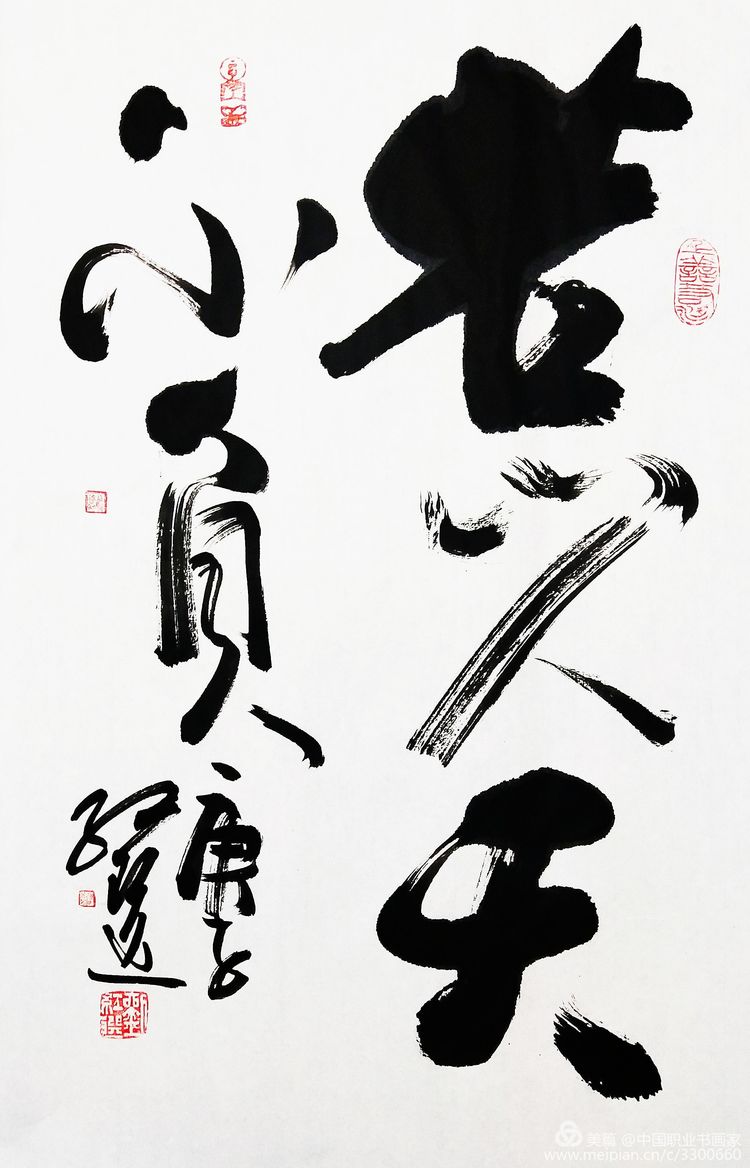 苦心人天
不負
庚子
美篇 @中国职业书画家
www.meipian.cn/c/3300660